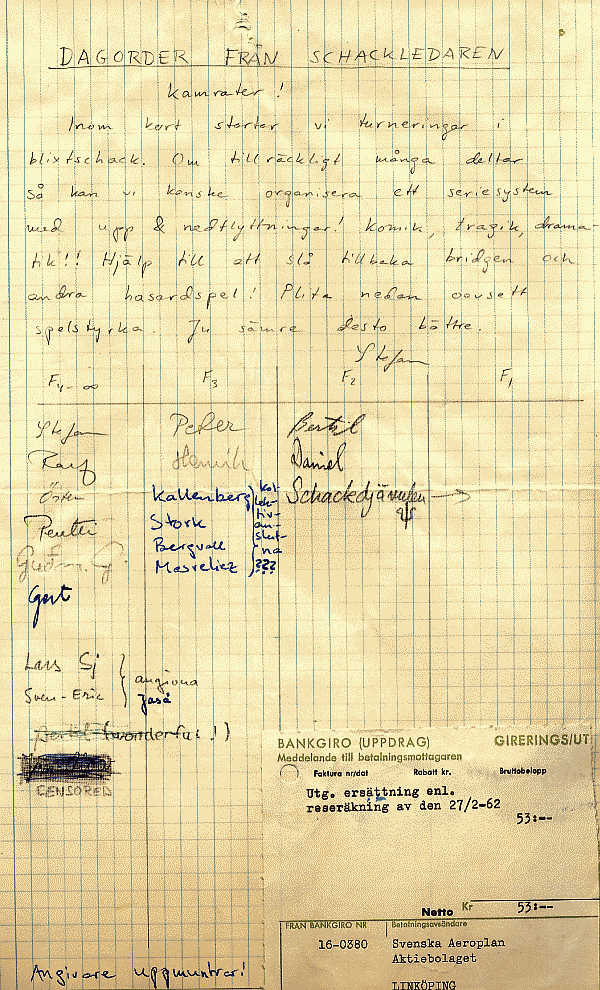 DAGORDER FRÅN SCHACKLEDAREN
Kamrater!
Inom kort startar vi turneringar i
blixtschack. Om tillräckligt många deltar
så kan vi kanske organisera ett seriesystem
med upp & nedflyttningar! Komik, tragik, drama-
tik!! Hjälp till att slå tillbaka bridgen och
andra hasardspel! Plita nedan oavsett
spelstyrka. Ju sämre desto bättre.
Stefan
F4-∞ F3 F2 F1
Stefan Peter Bertil
Ralf Henrik Daniel
Östen Kallenberg Schackdjävulen →
Pentti Stork
Bergvall
Gudm. G. Masreliez
kol-
lek-
tiv-
an-
slut-
na
???
Gert
Lars Sj
Sven-Eric
angivna
Jaså
Bertil (wonderful!)
CENSORED
Angivare uppmuntras!
BANKGIRO (UPPDRAG) GIRERINGS/UT
Meddelande till betalningsmottagaren
Faktura nr/dat Rabatt kr. Bruttobelopp
Utg. ersättning enl.
reseräkning av den 27/2-62
53:--
Netto Kr 53:--
FRÅN BANKGIRO NR Betalningsavsändare
16-0380 Svenska Aeroplan
Aktiebolaget
LINKÖPING